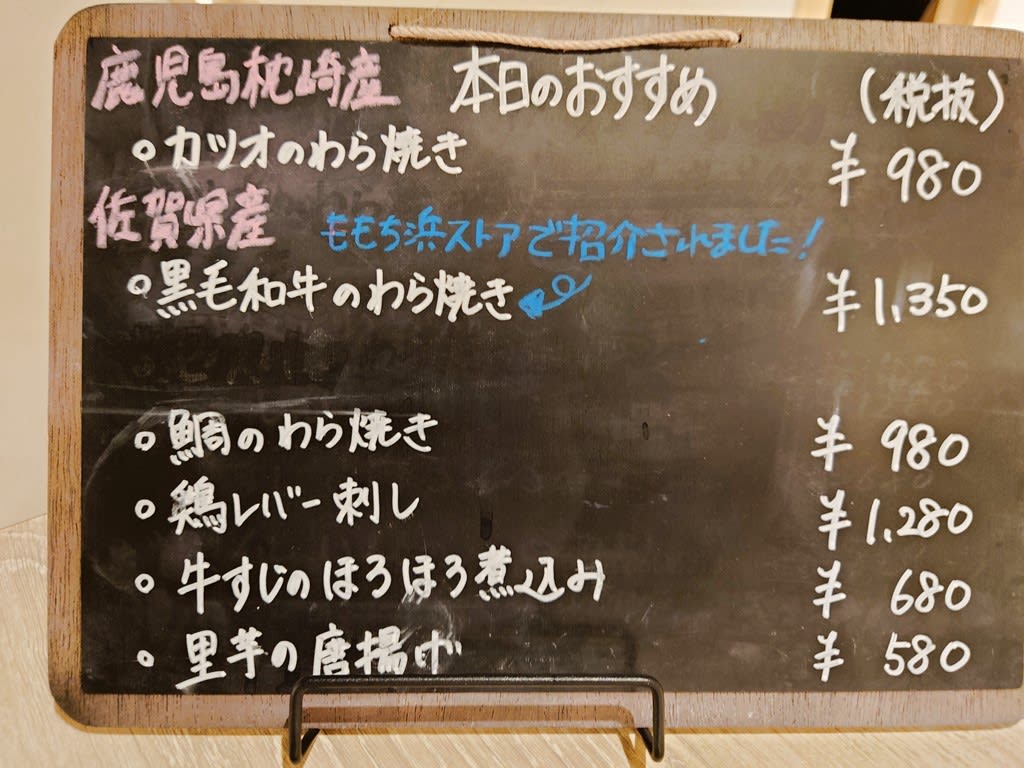 鹿児島枕崎産 本日のおすすめ (税抜)
○カツオのわら焼き ¥980
佐賀県産 ももち浜ストアでご紹介されました!
○黒毛和牛のわら焼き ¥1,350
○鯛のわら焼き ¥980
○鶏レバー刺し ¥1,280
○牛すじのほろほろ煮込み ¥680
○里芋の唐揚げ ¥580